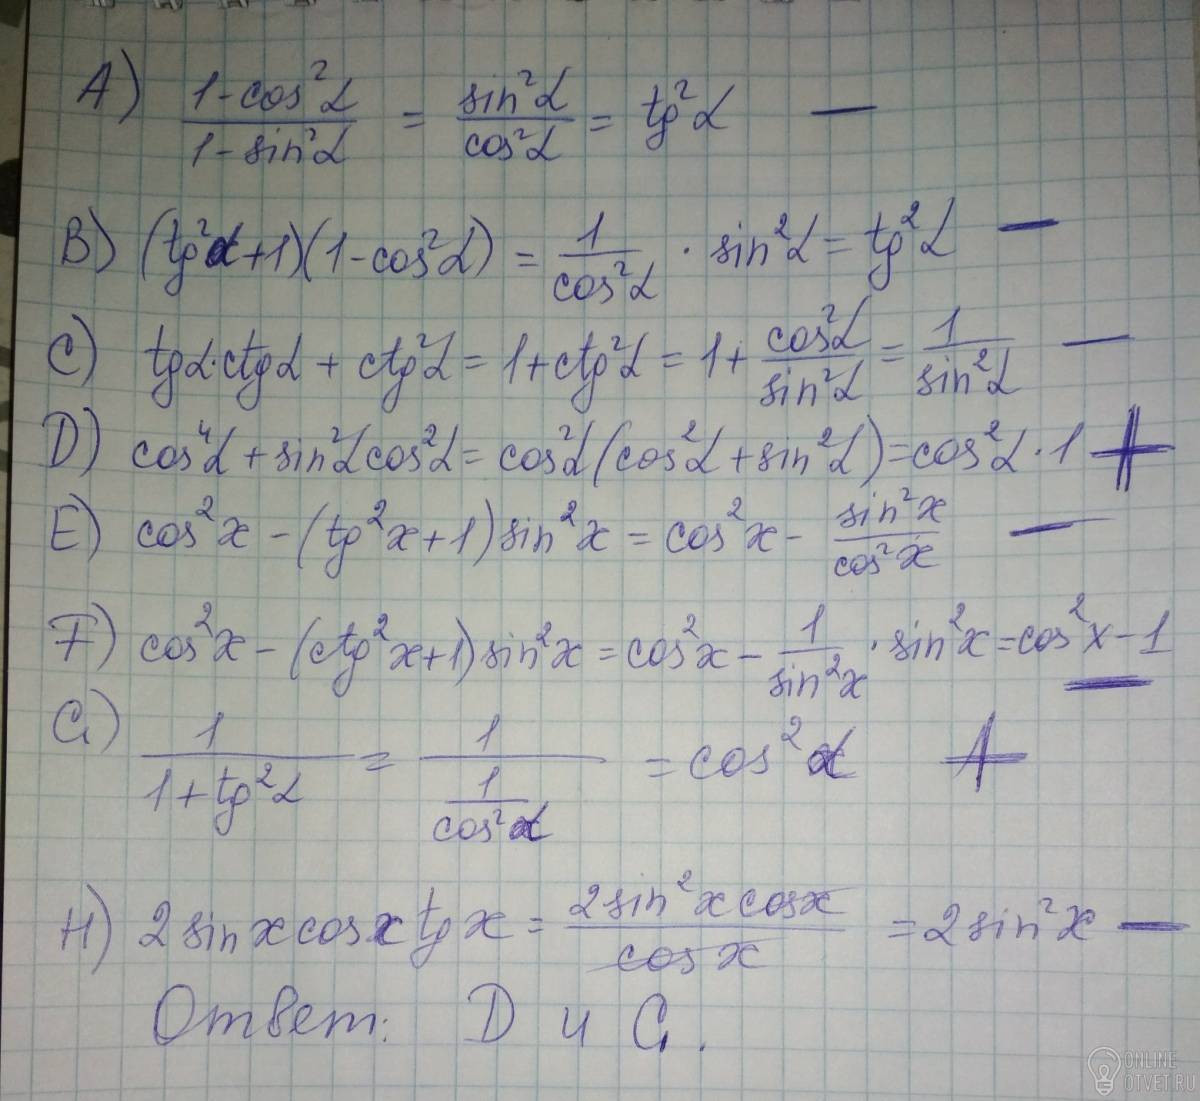 A) (1-cos²α)/(1-sin²α) = sin²α/cos²α = tg²α —
B) (tg²α+1)(1-cos²α) = 1/cos²α · sin²α = tg²α —
C) tgα·ctgα + ctg²α = 1+ctg²α = 1+ cos²α/sin²α = 1/sin²α —
D) cos⁴α + sin²α cos²α = cos²α(cos²α + sin²α) = cos²α·1 +
E) cos²x - (tg²x+1)sin²x = cos²x - sin²x/cos²x —
F) cos²x - (ctg²x+1)sin²x = cos²x - 1/sin²x · sin²x = cos²x-1 —
G) 1/(1+tg²α) = 1/(1/cos²α) = cos²α +
H) 2sinxcosx tgx = 2sin²x cosx/cosx = 2sin²x —
Ответ: D и G.
ONLINE
OTVET.RU